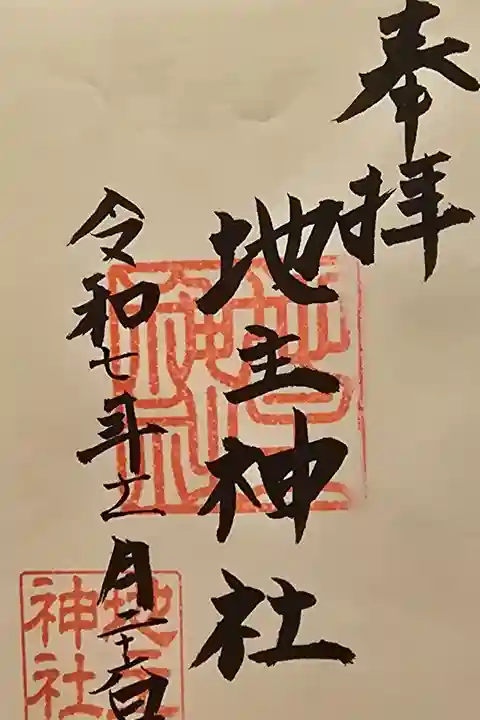 奉拝
地主神社
令和七年十二月二十日
地主
神社